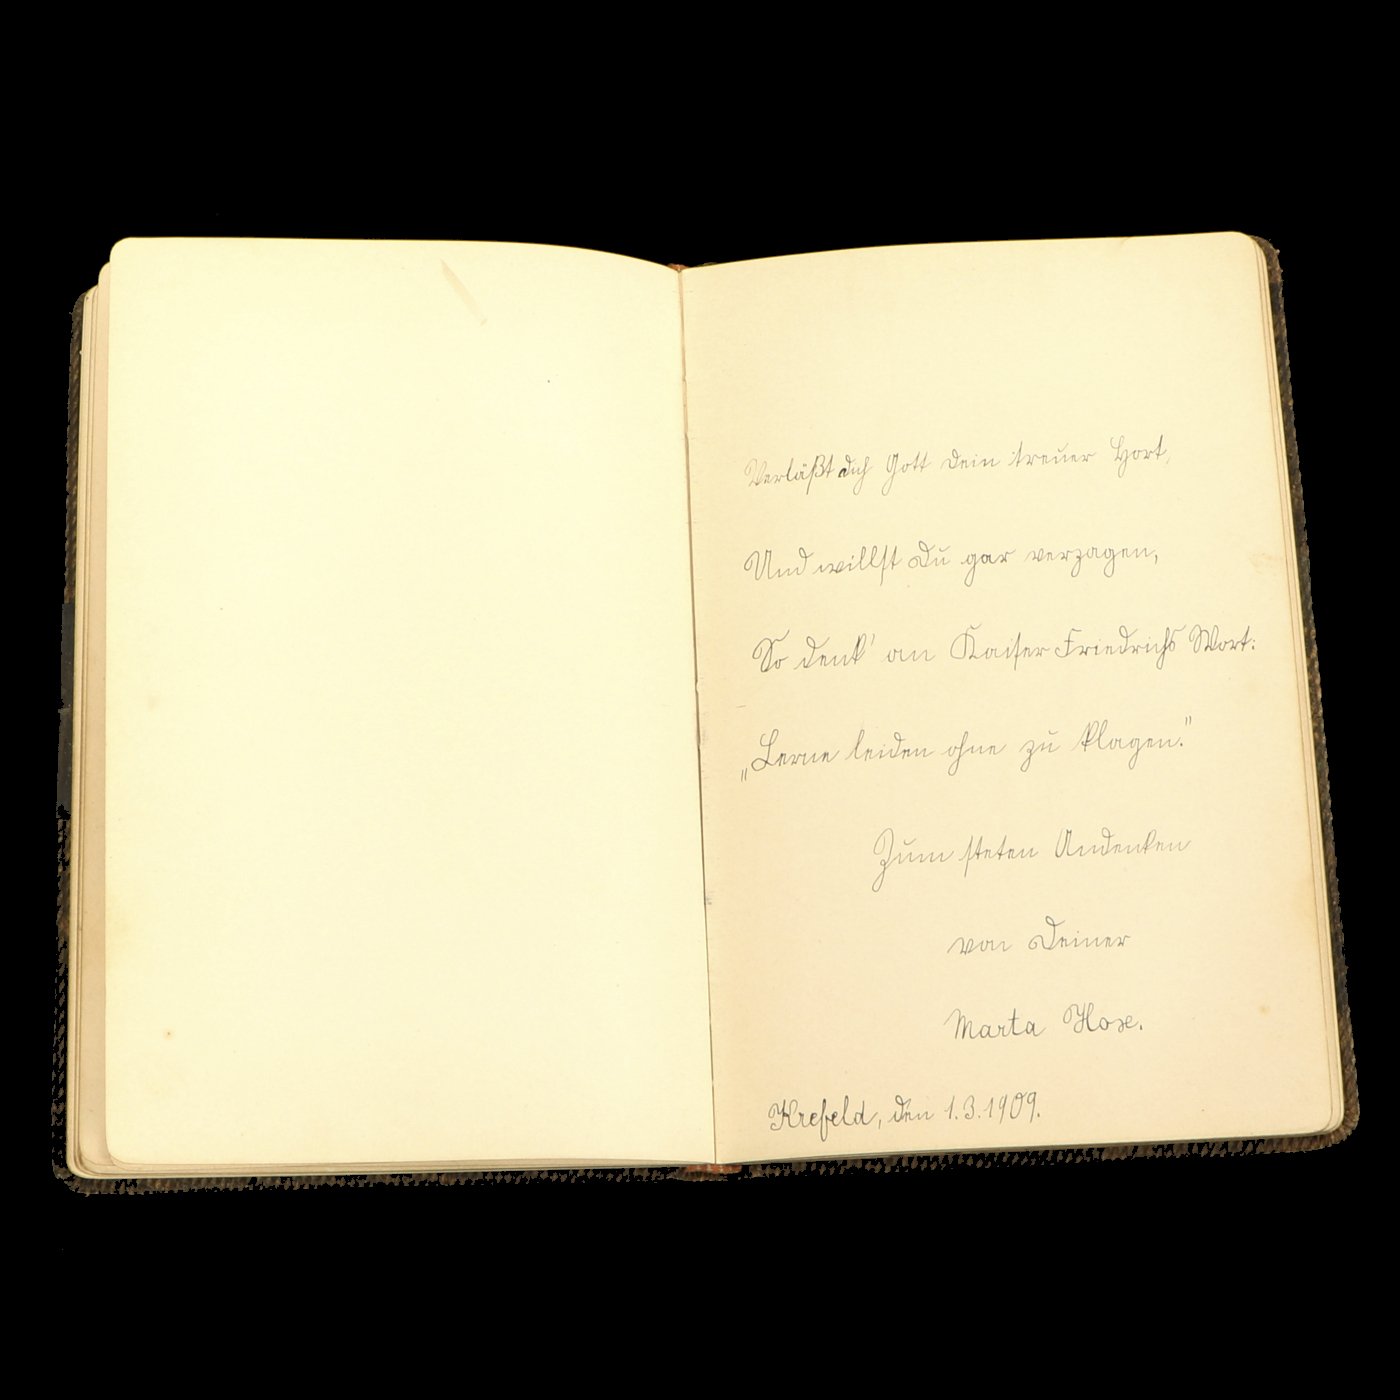 Verläßt dich Gott dein treuer Hort,
Und willst Du gar verzagen,
So denk' an Kaiser Friedrichs Wort:
„Lerne leiden ohne zu klagen."
Zum steten Andenken
von Deiner
Marta Hox.
Krefeld, den 1.3.1909.